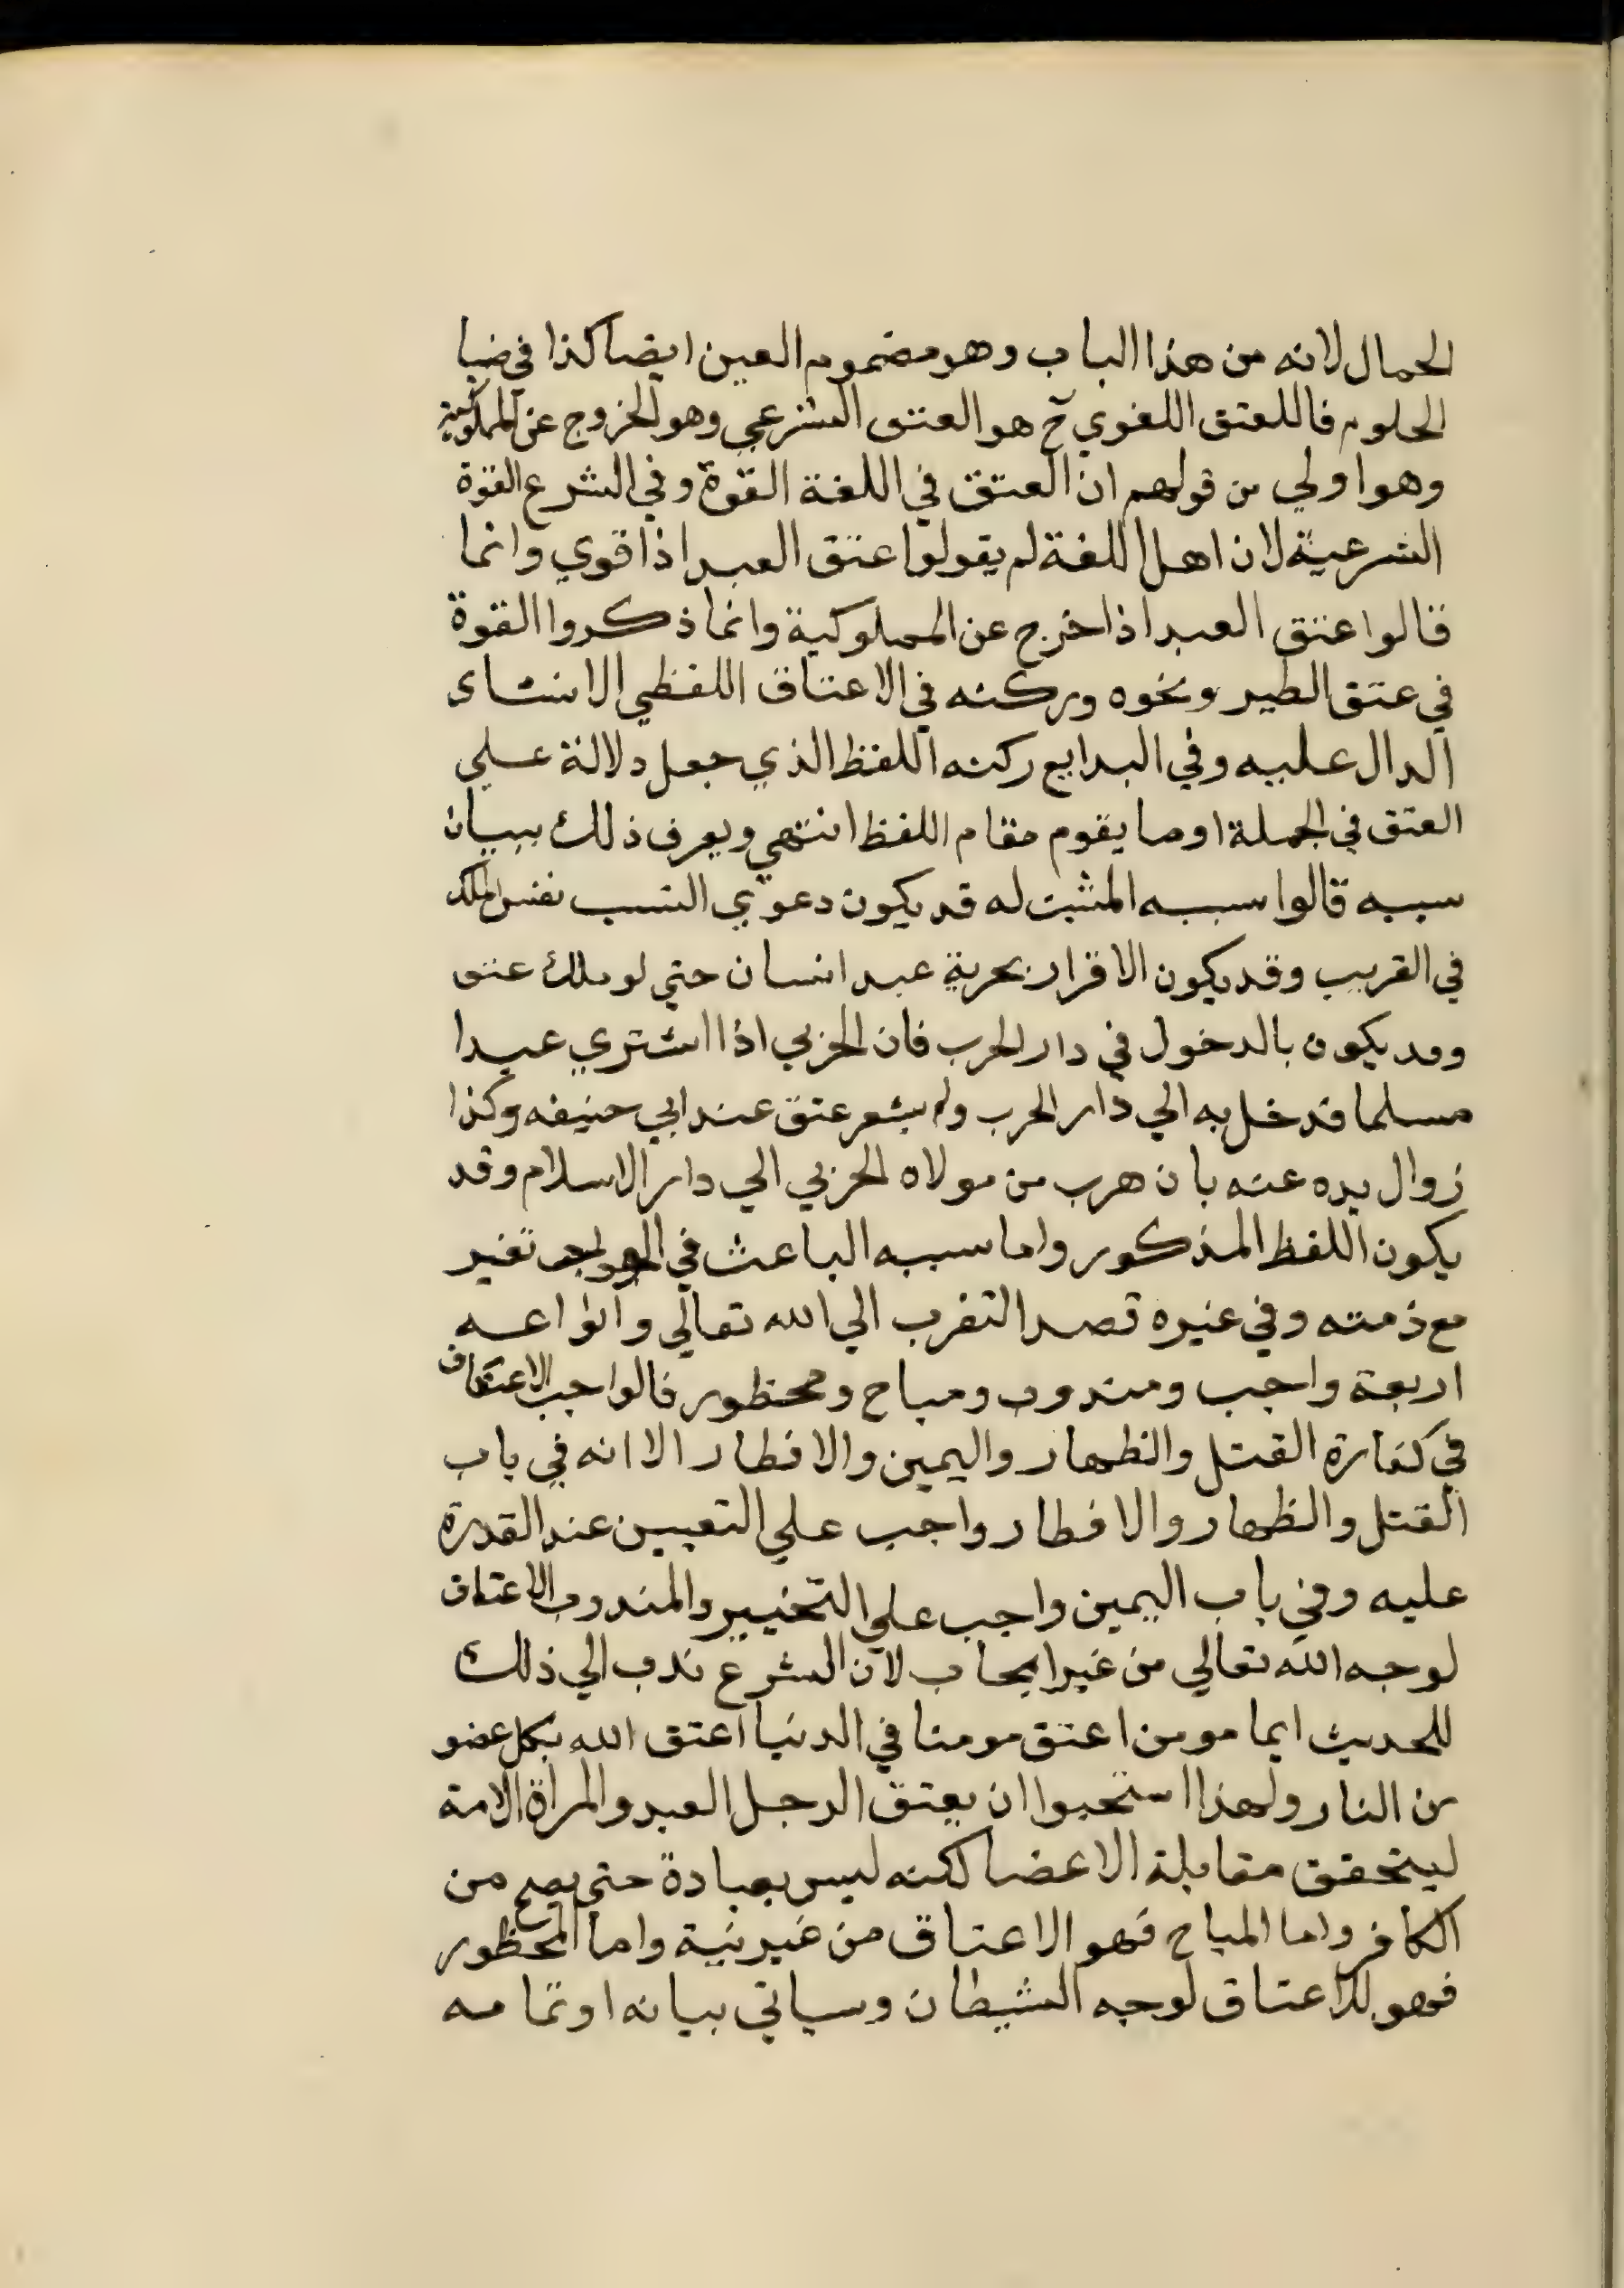 الجمال لانه من هذا الباب وهو مضموم العين ايضا كذا في ضيا
الحلوم فاللعتق اللغوي ح هو العتق الشرعي وهو الخروج عن المملوكية
وهو اولي من قولهم ان العتق في اللغة القوة وفي الشرع القوة
الشرعية لان اهل اللغة لم يقولوا عتق العبد اذا قوي وانما
قالوا عتق العبد اذا خرج عن المملوكية وانما ذكروا القوة
في عتق الطير ونحوه وركنه في الاعتاق اللفظي الانشاى
الدال عليه وفي البدايع ركنه اللفظ الذي جعل دلالة علي
العتق في الجملة او ما يقوم مقام اللفظ انتهي ويعرف ذلك ببيان
سببه قالوا سببه المثبت له قد يكون دعوي النسب نفس الملك
في القريب وقد يكون الاقرار بحرية عبد انسان حتي لو ملك عتق
وقد يكون بالدخول في دار الحرب فان الحربي اذا اشتري عبدا
مسلما فدخل به الي دار الحرب ولم يشعر عتق عند ابي حنيفه وكذا
زوال يده عنه بان هرب من مولاه الحربي الي دار الاسلام وقد
يكون اللفظ المذكور واما سببه الباعث في الواجب تفير
مع ذمته وفي غيره قصد التقرب الي الله تعالي وانواعه
اربعة واجب ومندوب ومباح ومحظور فالواجب الاعتاق
في كفارة القتل والظهار واليمين والافطار الا انه في باب
القتل والظهار والافطار واجب علي التعيين عند القدرة
عليه وفي باب اليمين واجب علي التخيير والمندوب الاعتاق
لوجه الله تعالي من غير ايجاب لان الشرع ندب الي ذلك
للحديث ايما مومن اعتق مومنا في الدنيا اعتق الله بكل عضو
من النار ولهذا استحبوا ان يعتق الرجل العبد والمراة الامة
ليتحقق مقابلة الاعضا لكنه ليس بعبادة حتي يصح من
الكافر واما المباح فهو الاعتاق من غير نية واما المحظور
فهو الاعتاق لوجه الشيطان وسياتي بيانه او تمامه